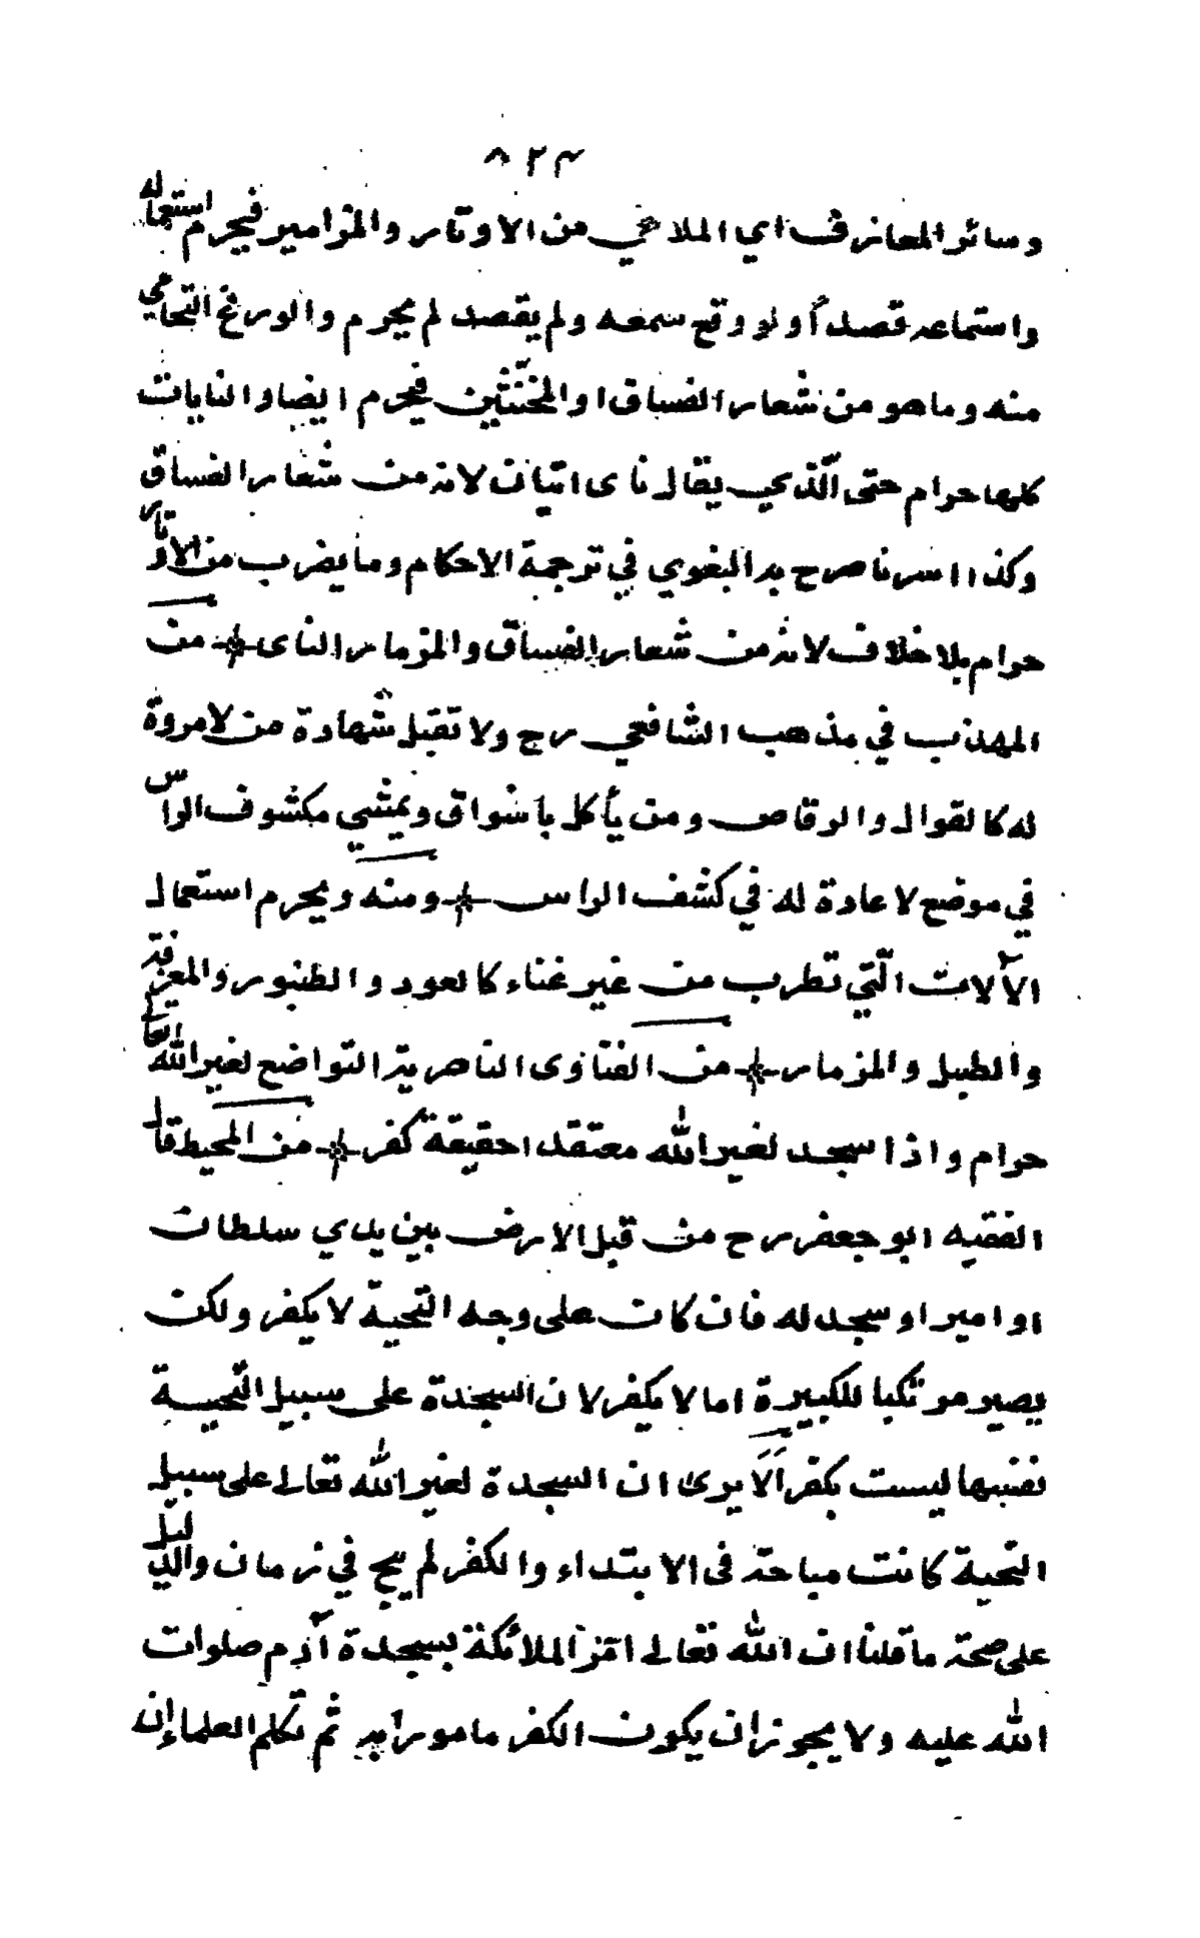 ٨٢٣
وسائر المعازف اي الملاهي من الاوتار والمزامير فيحرم استعماله
واستماعه قصداً ولو وقع سمعه ولم يقصد لم يحرم والورع التجافي
منه وما هو من شعار الفساق او المخنّثين فيحرم ايضا والنايات
كلها حرام حتى الّذي يقال ناى لانه من شعار الفساق
وكذا صرح به البغوي في ترجمة الاحكام وما يضرب من الاوتار
حرام بلا خلاف لانه من شعار الفساق والمزمار الناى من
المهذب في مذهب الشافعي رح ولا تقبل شهادة من لامروة
له كالقوال والرقاص ومن يأكل باسواق ويمشي مكشوف الراس
في موضع لا عادة له في كشف الراس ومنه ويحرم استعمال
الآلات الّتي تطرب من غير غناء كالعود والطنبور والمعزفة
والطبل والمزمار من الفتاوى الناصرية التواضع لغير الله تعالى
حرام واذا سجد لغير الله معتقدا حقيقة كفر من المحيط قال
الفقيه ابو جعفر رح من قبل الارض بين يدي سلطان
او امير او سجد له فان كان على وجه التحية لا يكفر ولكن
يصير مرتكبا للكبيرة اما لا يكفر لان السجدة على سبيل التحية
نفسها ليست بكفر ألا يرى ان السجدة لغير الله تعالى على سبيل
التحية كانت مباحة فى الابتداء والكفر لم يبح في زمان والدليل
على صحة ما قلنا ان الله تعالى امر الملائكة بسجدة آدم صلوات
الله عليه ولا يجوز ان يكون الكفر مامورا به ثم تكلم العلماء ان